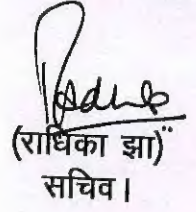 (राधिका झा)"
सचिव।